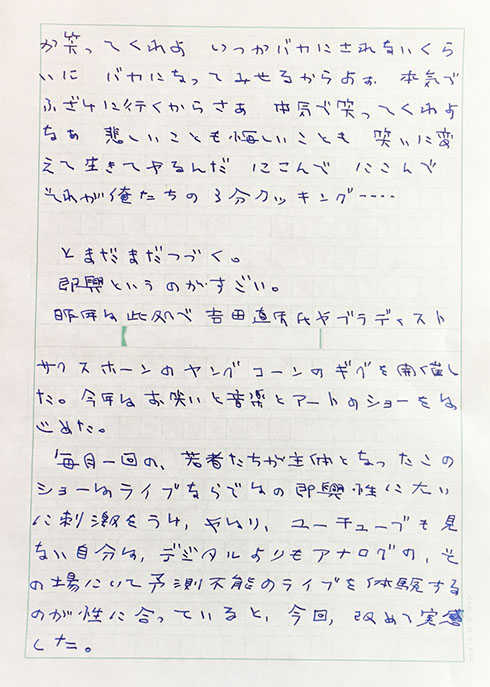 か笑ってくれよ いつかバカにされないくら
いに バカになってみせるからよぉ 本気で
ふざけに行くからさぁ 本気で笑ってくれよ
なぁ 悲しいことも悔しいことも 笑いに変
えて生きてヤるんだ にこんで にこんで
それが俺たちの3分クッキング‥‥
とまだまだつづく。
即興というのがすごい。
昨年は此処で吉田直氏やブラディスト
サクスホーンのヤングコーンのギグを開催し
た。今年はお笑いと音楽とアートのショーをは
じめた。
毎月一回の、若者たちが主体となったこの
ショーはライブならではの即興性に大い
に刺激をうけ、やはり、ユーチューブも見
ない自分は、デジタルよりもアナログの、そ
の場にいて予測不能のライブを体験する
のが性に合っていると、今回、改めて実感
した。